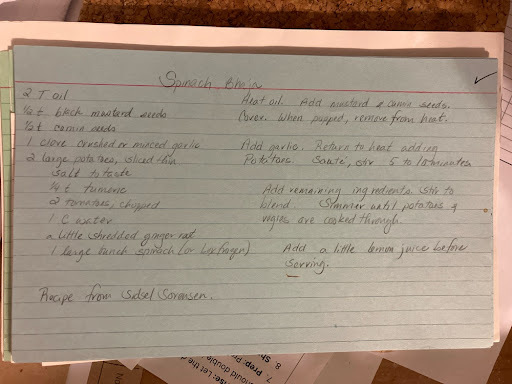 Spinach Bhaji
2 T oil
½ t black mustard seeds
½ t cumin seeds
1 clove crushed or minced garlic
2 large potatoes, sliced thin
salt to taste
¼ t tumeric
2 tomatoes, chopped
1 C water
a little shredded ginger root
1 large bunch spinach (or box frozen)
Heat oil. Add mustard & cumin seeds.
Cover. When popped, remove from heat.
Add garlic. Return to heat adding
Potatoes. Sauté, stir 5 to 10 minutes
Add remaining ingredients. Stir to
blend. Simmer until potatoes &
vegies are cooked through.
Add a little lemon juice before
serving.
Recipe from Sidsel Sorensen.
7. Prep:
8.